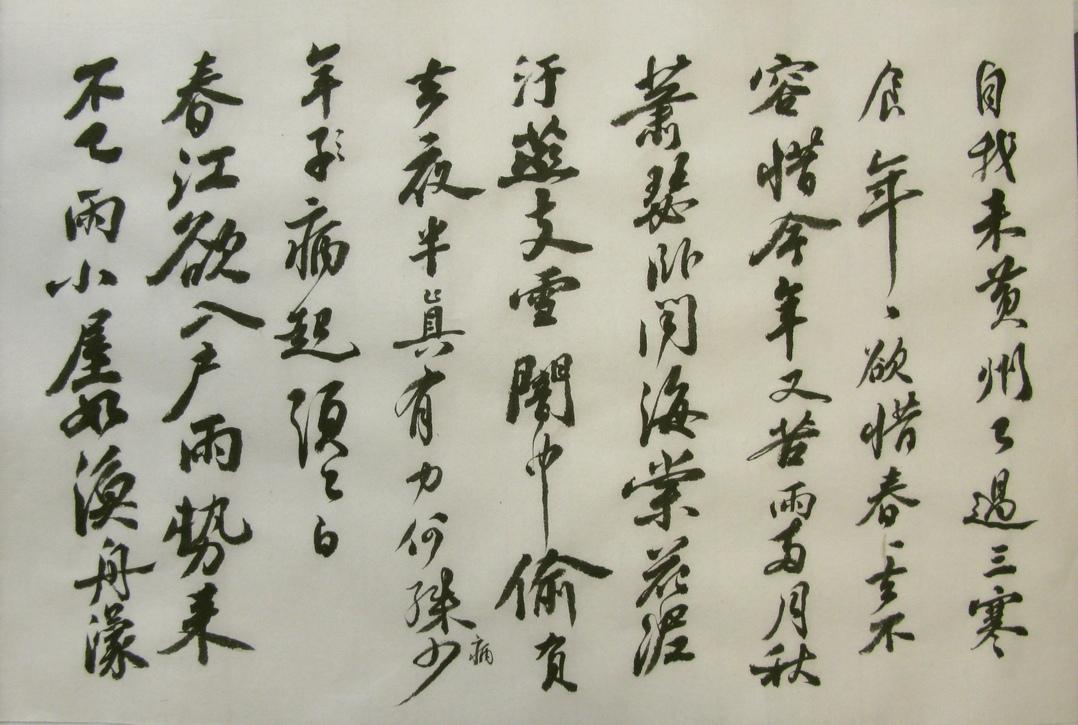 自我来黄州已過三寒
食年〻欲惜春〻去不
容惜今年又苦雨兩月秋
蕭瑟卧聞海棠花泥
汙燕支雪闇中偷負
去夜半真有力何殊少
病
年子病起須已白
春江欲入户雨勢来
不已雨小屋如漁舟濛